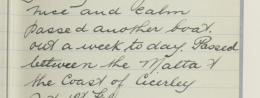 nice and Calm
passed another boat.
out a week to day. Passed
between the Malta &
the Coast of Cicerley